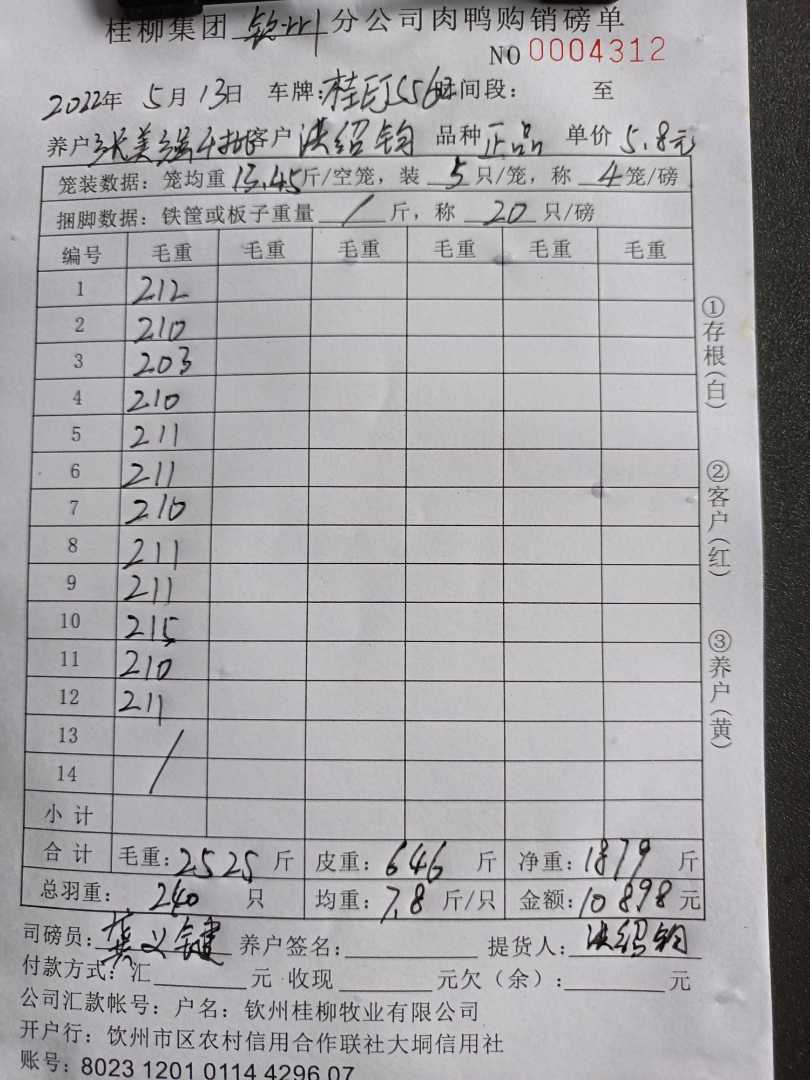 桂柳集团 钦州 分公司肉鸭购销磅单
NO 0004312
2022年 5月 13日 车牌: 时间段: 至
养户 张美强 客户 洪绍钧 品种 正品 单价 5.8元
笼装数据: 笼均重 13.45斤/空笼, 装 5 只/笼, 称 4笼/磅
捆脚数据: 铁筐或板子重量 / 斤, 称 20 只/磅
编号 毛重 毛重 毛重 毛重 毛重 毛重
1 212
2 210
3 203
4 210
5 211
6 211
7 210
8 211
9 211
10 215
11 210
12 211
13 /
14
小计
合计 毛重: 2525 斤 皮重: 646 斤 净重: 1879 斤
总羽重: 240 只 均重: 7.8 斤/只 金额: 10898元
司磅员: 龚义键 养户签名: 提货人: 洪绍钧
付款方式: 汇 元 收现 元欠(余): 元
公司汇款帐号: 户名: 钦州桂柳牧业有限公司
开户行: 饮州市区农村信用合作联社大垌信用社
账号: 8023 1201 0114 4296 07
①存根(白)
②客户(红)
③养户(黄)